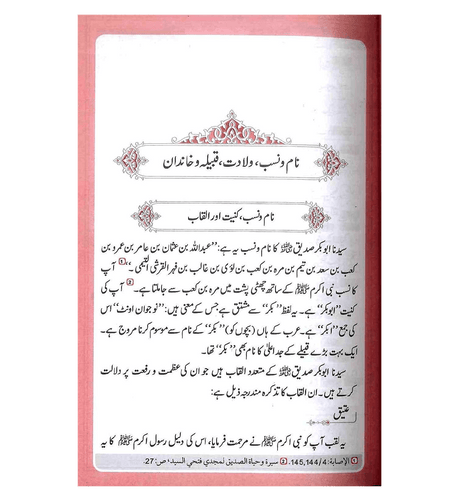 نام و نسب، ولادت، قبیلہ و خاندان
نام و نسب، کنیت اور القاب
سیدنا ابوبکر صدیق ﷜ کا نام و نسب یہ ہے: ’’عبداللہ بن عثمان بن عامر بن عمرو بن
کعب بن سعد بن تیم بن مرہ بن کعب بن لؤی بن غالب بن فہر القرشی التیمی۔‘‘ 1 آپ
کا نسب نبی اکرم ﷺ کے ساتھ چھٹی پشت میں مرہ بن کعب سے جا ملتا ہے۔ 2 آپ کی
کنیت ’’ابوبکر‘‘ ہے۔ یہ لفظ ’’بکر‘‘ سے مشتق ہے جس کے معنی ہیں: ’’نوجوان اونٹ‘‘ اس
کی جمع ’’ابکر‘‘ ہے۔ عرب کے ہاں (بچوں کو) ’’بکر‘‘ کے نام سے موسوم کرنا مروج ہے۔
ایک بہت بڑے قبیلے کے جد اعلیٰ کا نام بھی ’’بکر‘‘ تھا۔
سیدنا ابوبکر صدیق ﷜ کے متعدد القاب ہیں جو ان کی عظمت و رفعت پر دلالت
کرتے ہیں۔ ان القاب کا تذکرہ مندرجہ ذیل ہے:
عتیق
یہ لقب آپ کو نبی اکرم ﷺ نے مرحمت فرمایا، اس کی دلیل رسول اکرم ﷺ کا یہ
1 الإصابة: 4/145,144. 2 سيرة وحياة الصديق لمجدي فتحي السيد، ص: 27.